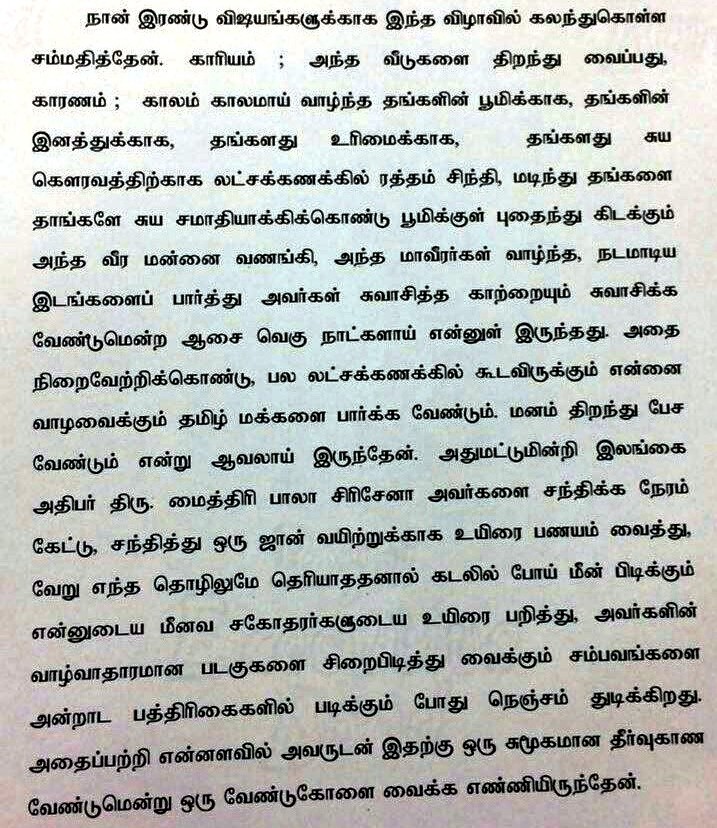 நான் இரண்டு விஷயங்களுக்காக இந்த விழாவில் கலந்துகொள்ள
சம்மதித்தேன். காரியம் ; அந்த வீடுகளை திறந்து வைப்பது,
காரணம் ; காலம் காலமாய் வாழ்ந்த தங்களின் பூமிக்காக, தங்களின்
இனத்துக்காக, தங்களது உரிமைக்காக, தங்களது சுய
கௌரவத்திற்காக லட்சக்கணக்கில் ரத்தம் சிந்தி, மடிந்து தங்களை
தாங்களே சுய சமாதியாக்கிக்கொண்டு பூமிக்குள் புதைந்து கிடக்கும்
அந்த வீர மண்னை வணங்கி, அந்த மாவீரர்கள் வாழ்ந்த, நடமாடிய
இடங்களைப் பார்த்து அவர்கள் சுவாசித்த காற்றையும் சுவாசிக்க
வேண்டுமென்ற ஆசை வெகு நாட்களாய் என்னுள் இருந்தது. அதை
நிறைவேற்றிக்கொண்டு, பல லட்சக்கணக்கில் கூடவிருக்கும் என்னை
வாழவைக்கும் தமிழ் மக்களை பார்க்க வேண்டும். மனம் திறந்து பேச
வேண்டும் என்று ஆவலாய் இருந்தேன். அதுமட்டுமின்றி இலங்கை
அதிபர் திரு. மைத்திரி பாலா சிரிசேனா அவர்களை சந்திக்க நேரம்
கேட்டு, சந்தித்து ஒரு ஜான் வயிற்றுக்காக உயிரை பணயம் வைத்து,
வேறு எந்த தொழிலுமே தெரியாததனால் கடலில் போய் மீன் பிடிக்கும்
என்னுடைய மீனவ சகோதரர்களுடைய உயிரை பறித்து, அவர்களின்
வாழ்வாதாரமான படகுகளை சிறைபிடித்து வைக்கும் சம்பவங்களை
அன்றாட பத்திரிகைகளில் படிக்கும் போது நெஞ்சம் துடிக்கிறது.
அதைப்பற்றி என்னளவில் அவருடன் இதற்கு ஒரு சுமூகமான தீர்வுகாண
வேண்டுமென்று ஒரு வேண்டுகோளை வைக்க எண்ணியிருந்தேன்.